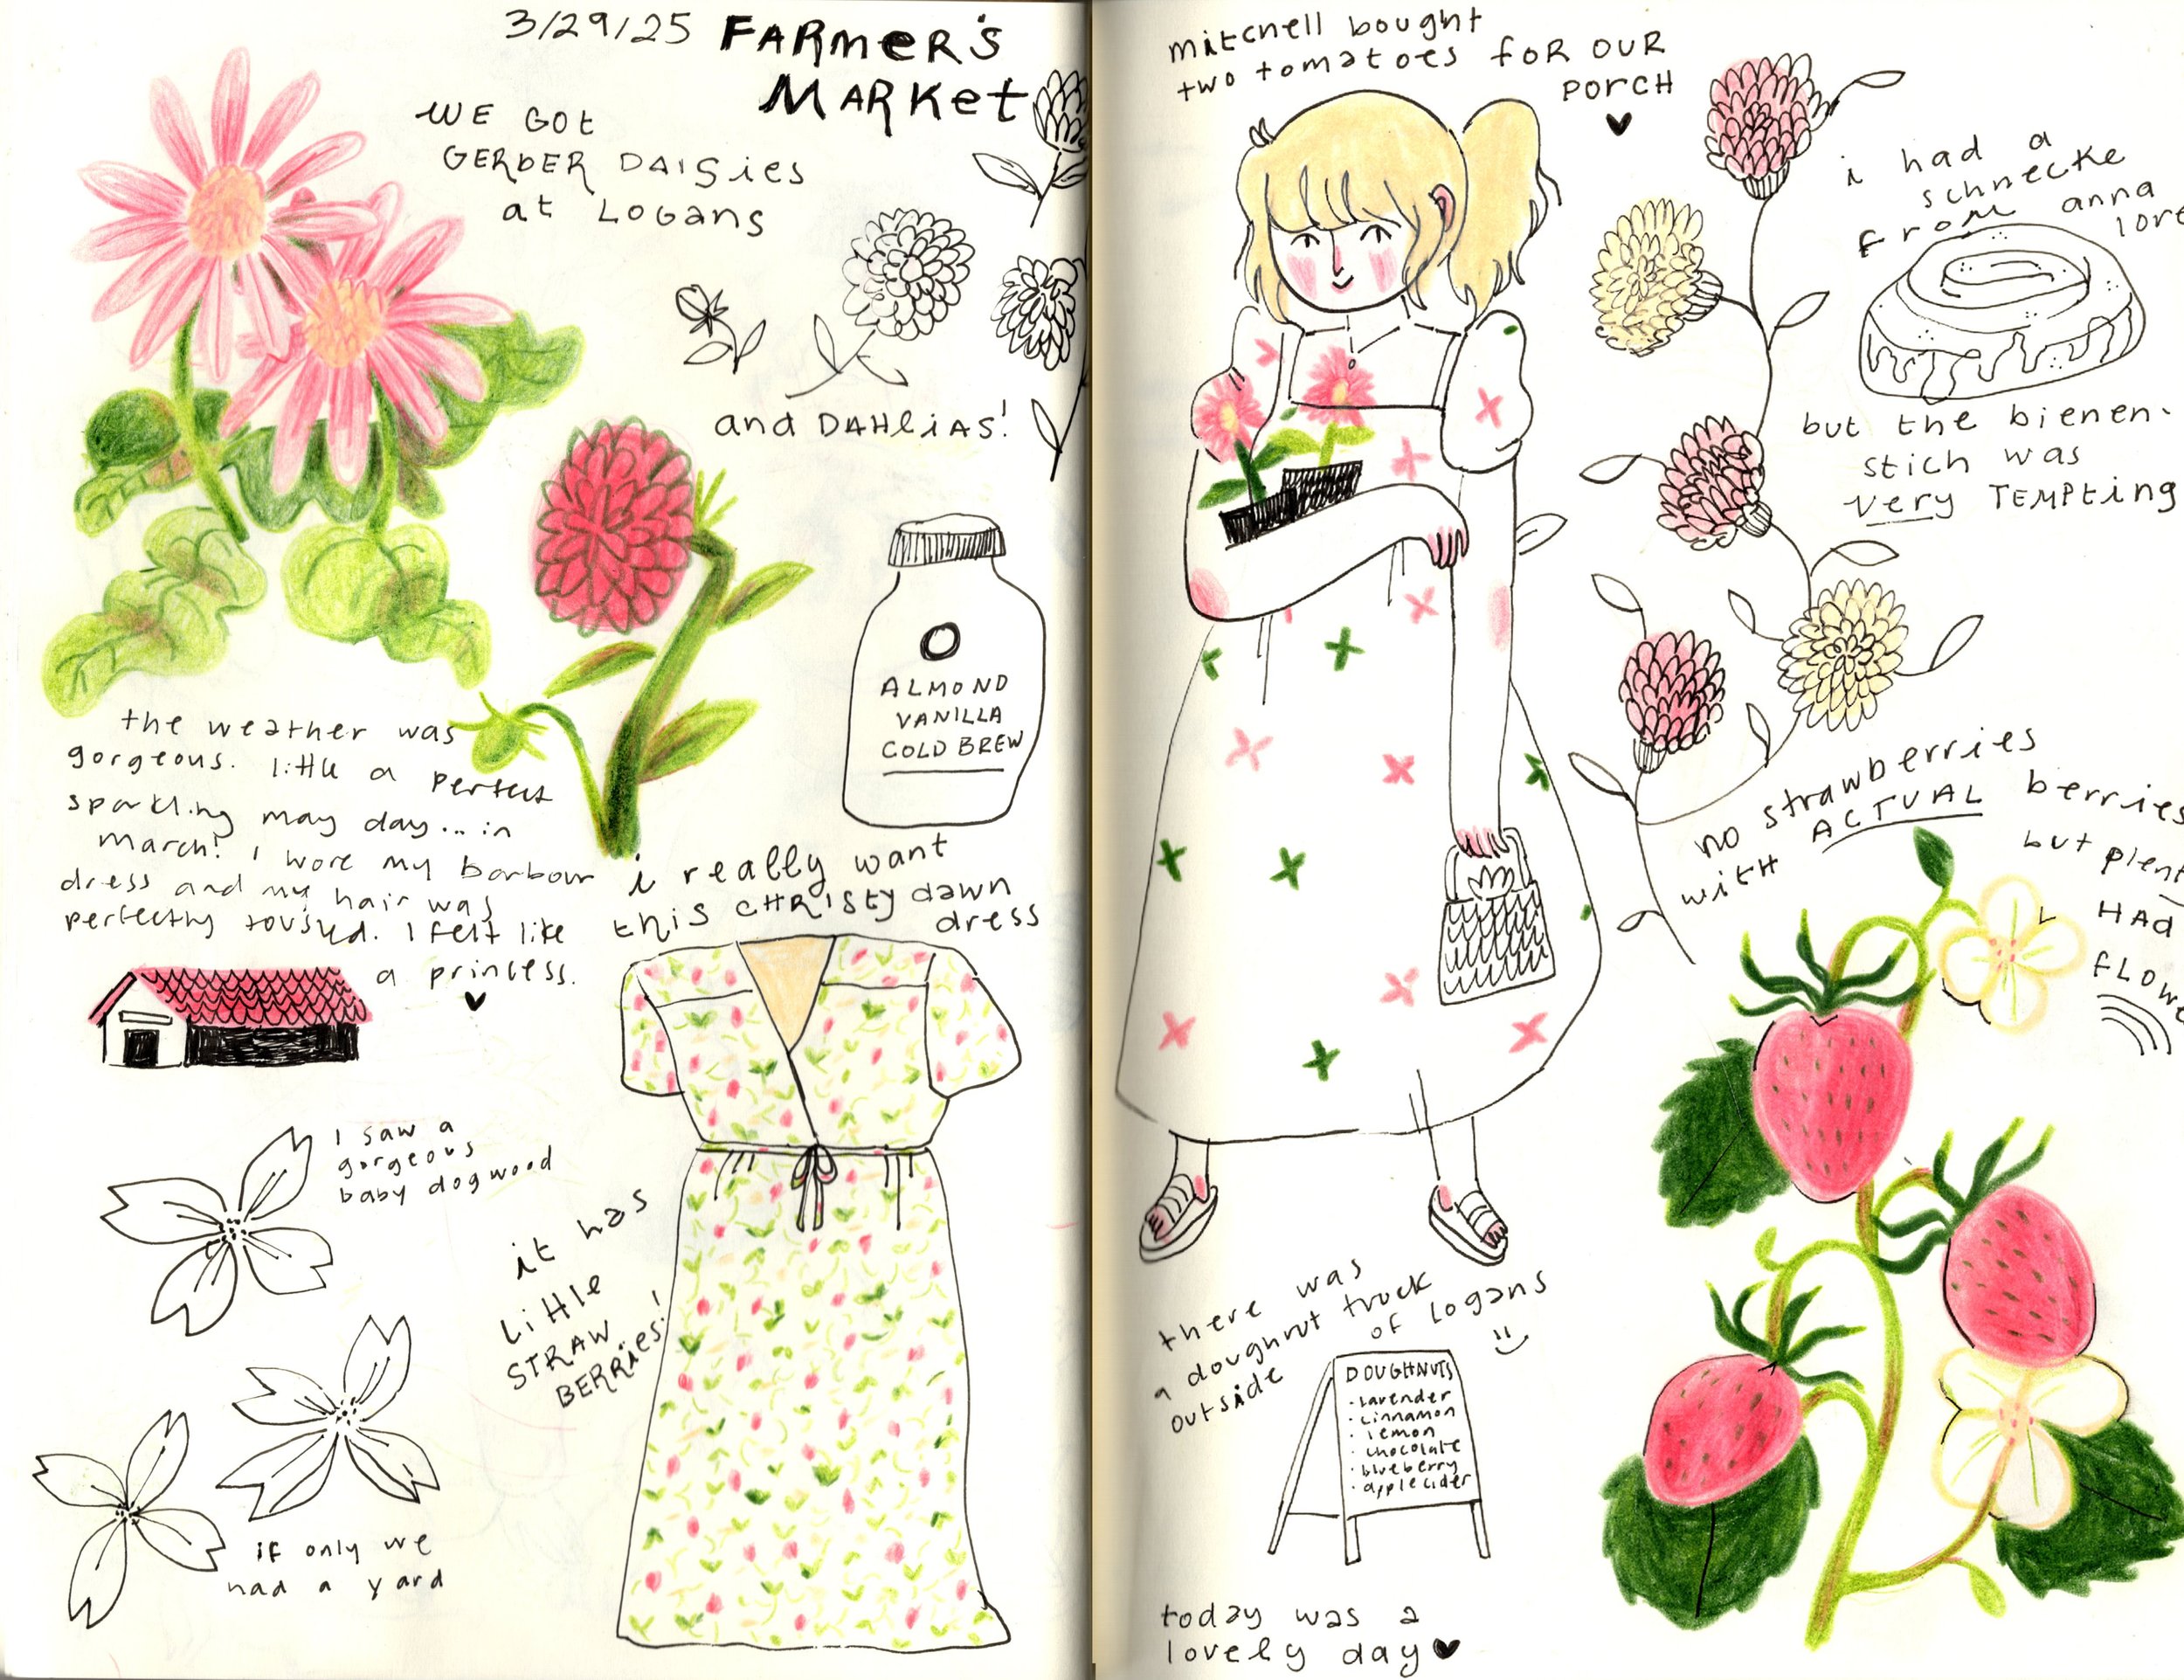 3/29/25 FARMER'S
MARKET
WE GOT
GERBER DAISIES
at LOGANS
and DAHLIAS!
ALMOND
VANILLA
COLD BREW
the weather was
gorgeous. little a perfect
sparkling may day... in
march! I wore my barbour
dress and my hair was
perfectly tousled. I felt like
a princess.
i really want
this CHRISTY dawn
dress
I saw a
gorgeous
baby dogwood
it has
little
STRAW
BERRIES!
if only we
had a yard
mitchell bought
two tomatoes for our
porch
i had a
schnecke
from anna
lore
but the bienen-
stich was
very TEMPting
no strawberries
with ACTUAL berries
but plent
HAD
FLOWE
there was
a doughnut truck
outside of logans
DOUGHNUTS
· lavender
· cinnamon
· lemon
· chocolate
· blueberry
· apple cider
today was a
lovely day